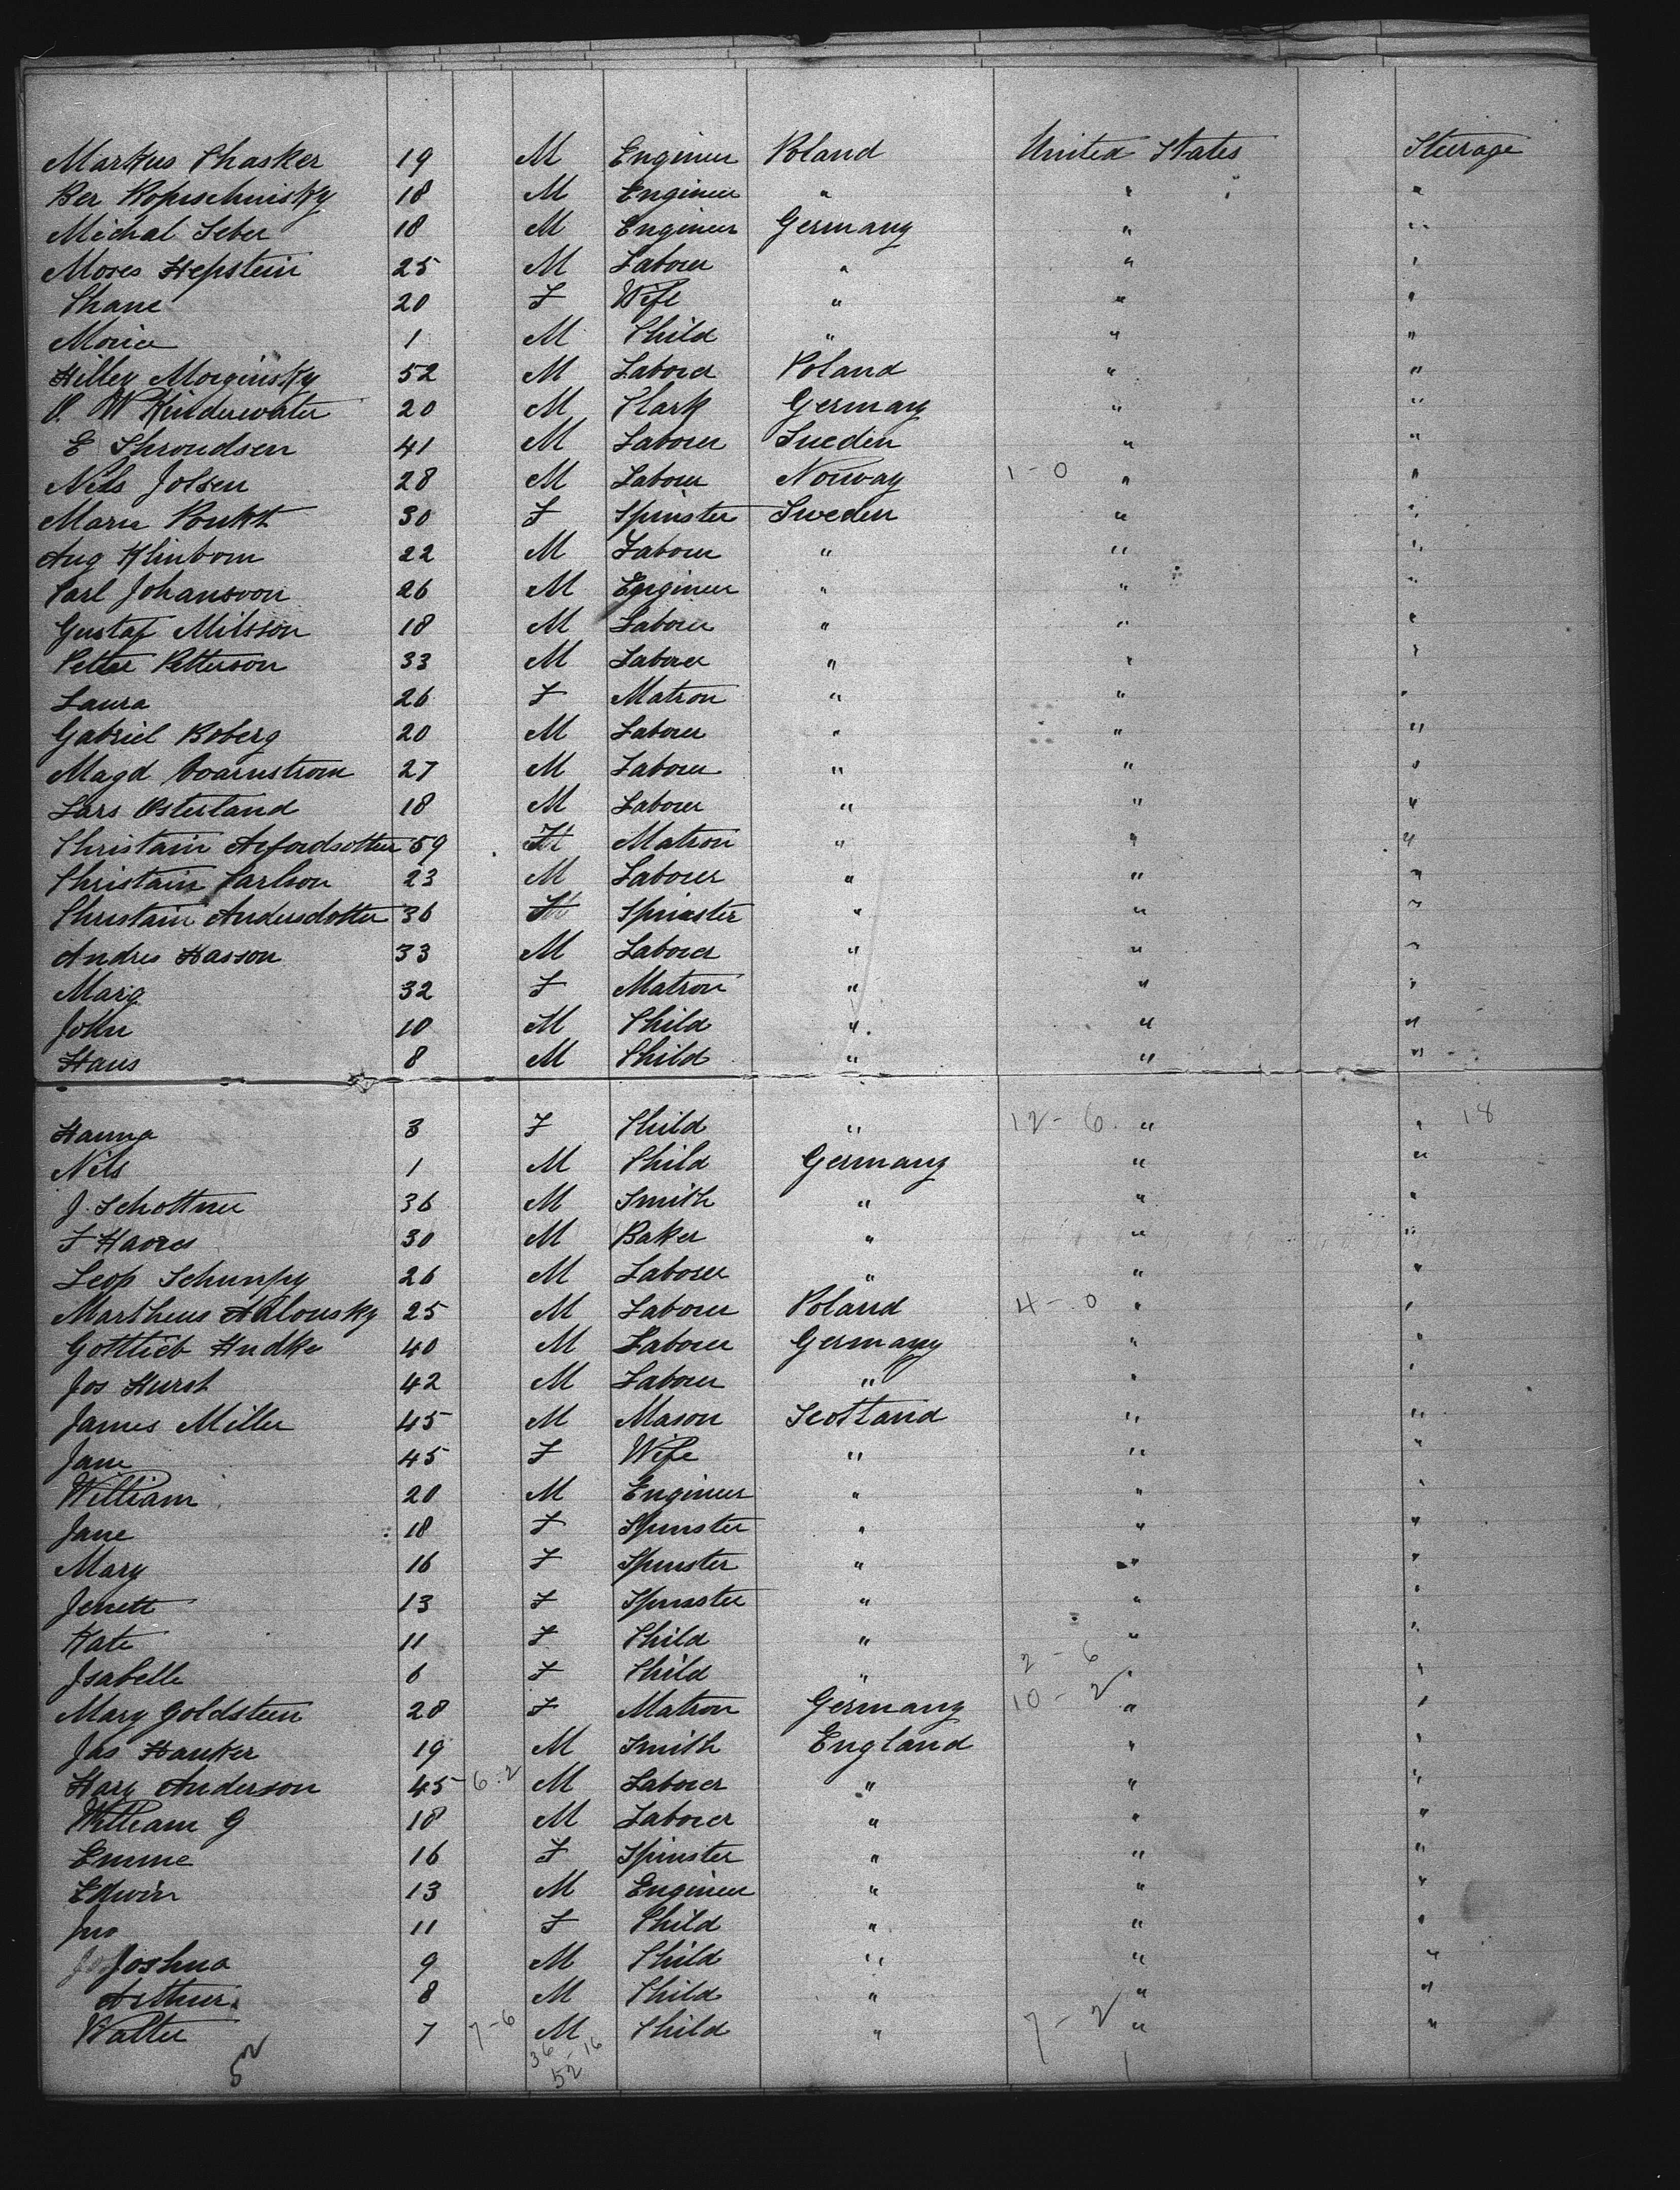 Markus Chasker 19 M Engineer Poland United States Steerage
Ber Kopischinisky 18 M Engineer " " "
Michal Leber 18 M Engineer Germany " "
Moses Hepstein 25 M Laborer " " "
Chane 20 F Wife " " "
Morice 1 M Child " " "
Hilley Morginsky 52 M Laborer Poland " "
O. W Kinderwater 20 M Clark Germay " "
E Throndsen 41 M Laborer Sueden " "
Nils Jolsen 28 M Laborer Norway 1-0 " "
Marie Poukt 30 F Spinster Sweden " "
Aug Klinbom 22 M Laborer " " "
Carl Johansson 26 M Engineer " " "
Gustaf Milsson 18 M Laborer " " "
Petter Petterson 33 M Laborer " " "
Laura 26 F Matron " " "
Gabriel Boberg 20 M Laborer " " "
Magd 27 M Laborer " " "
Lars Osterland 18 M Laborer " " "
Christain 59 F Matron " " "
Christain Carlson 23 M Laborer " " "
Christain Andersdotter 36 F Spinster " " "
Andres Hasson 33 M Laborer " " "
Marg 32 F Matron " " "
John 10 M Child " " "
Hans 8 M Child " " "
Hanna 3 F Child " 12-6 " " 18
Nils 1 M Child Germany " "
J. Schottner 36 M Smith " " "
F 30 M Baker " " "
Leop 26 M Laborer " " "
Martheus Adlonsky 25 M Laborer Poland 4-0 " "
Gottlieb Hudke 40 M Laborer Germany " "
Jos Hurst 42 M Laborer " " "
James Miller 45 M Mason Scottand " "
Jane 45 F Wife " " "
William 20 M Engineer " " "
Jane 18 F Spinster " " "
Mary 16 F Spinster " " "
Jenett 13 F Spinster " " "
Kate 11 F Child " " "
Isabelle 6 F Child " 2-6 " "
Mary Goldstein 28 F Matron Germany 10-2 " "
Jas Hanker 19 M Smith England " "
Hary Anderson 45 6.2 M Laborer " " "
William G 18 M Laborer " " "
Emme 16 F Spinster " " "
Edwin 13 M Engineer " " "
Jno 11 F Child " " "
Joshua 9 M Child " " "
Arthur 8 M Child " " "
Walter 7 7-6 M Child " 7-2 " "
52 36-16 1
52